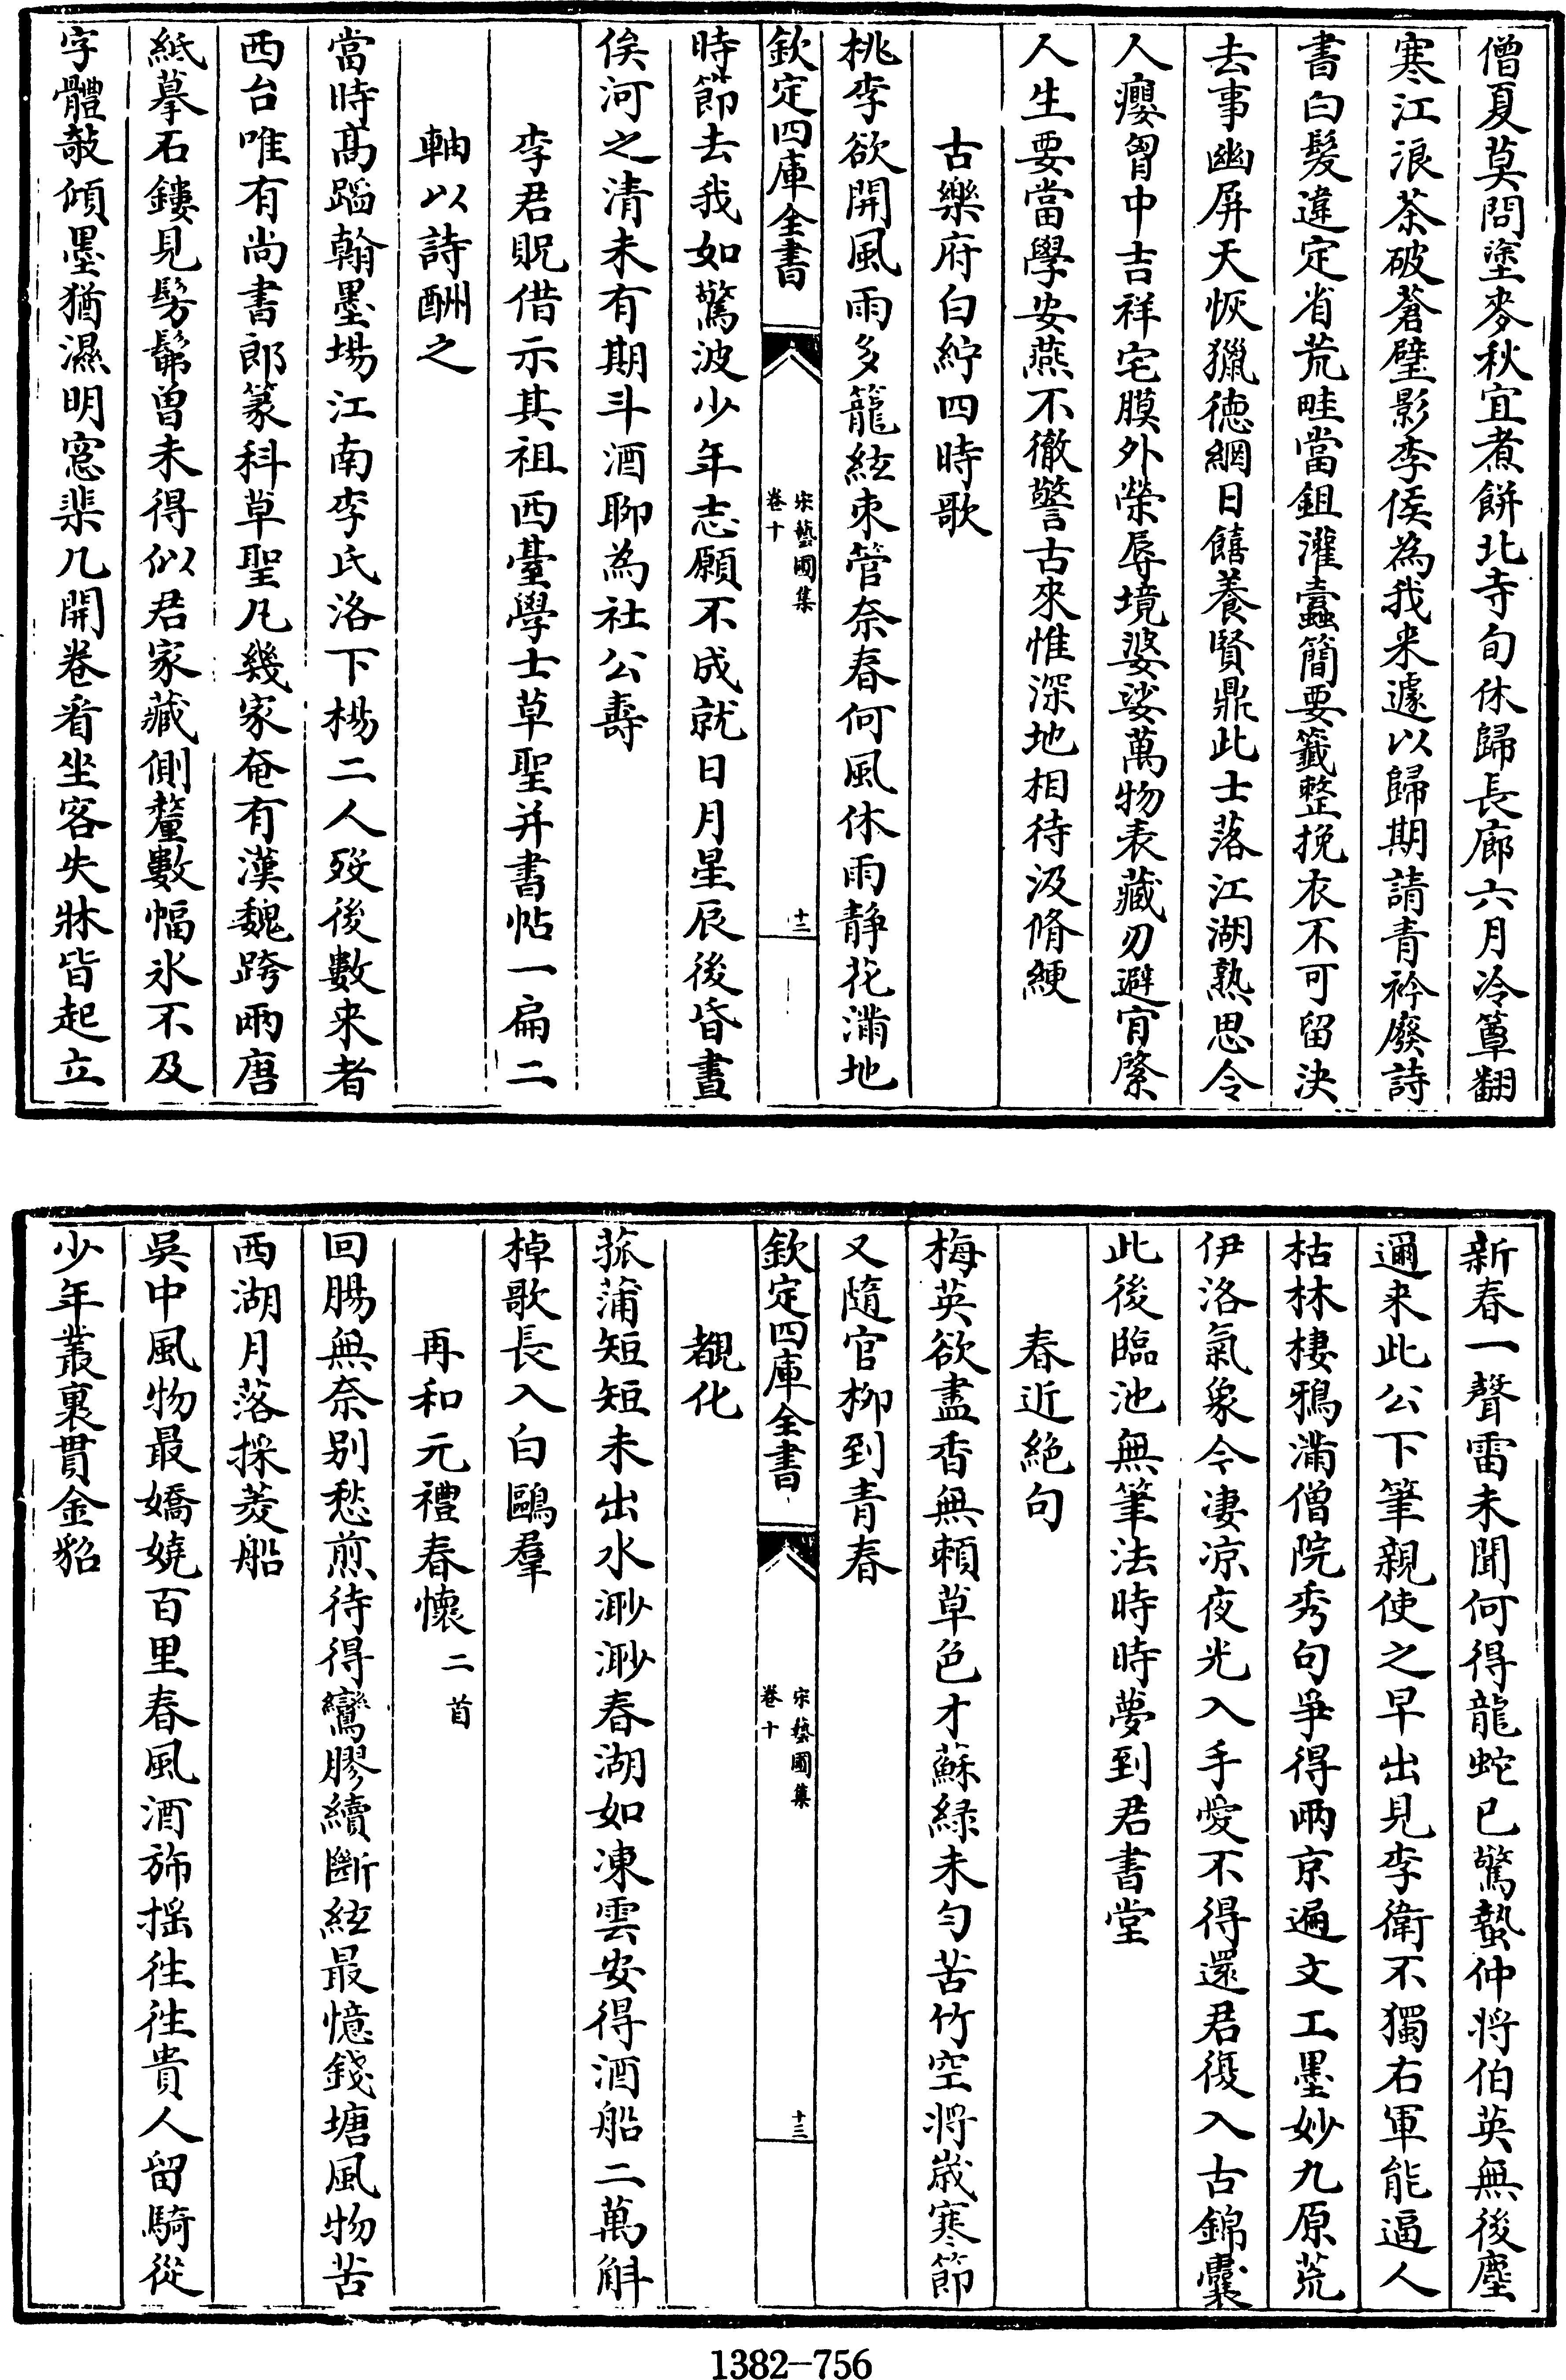 僧夏莫問塗麥秋宜煮餅北寺旬休歸長廊六月冷簟翻
寒江浪茶破蒼璧影李侯為我来遽以歸期請青衿廢詩
書白髮違定省荒畦當鉏灌蠹簡要籤整挽衣不可留決
去事幽屏天恢獵德網日饎養賢鼎此士落江湖熟思令
人癭胷中吉祥宅膜外榮辱境婆娑萬物表藏刃避肓綮
人生要當學安燕不徹警古來惟深地相待汲脩綆
古樂府白紵四時歌
桃李欲開風雨多籠絃束管奈春何風休雨静花滿地
欽定四庫全書
宋藝圃集
卷十
十三
時節去我如驚波少年志願不成就日月星辰後昏晝
俟河之清未有期斗酒聊為社公壽
李君貺借示其祖西臺學士草聖并書帖一扁二
軸以詩酬之
當時髙蹈翰墨場江南李氏洛下楊二人歿後數来者
西台唯有尚書郎篆科草聖凡幾家奄有漢魏跨兩唐
紙摹石鏤見髣髴曽未得似君家藏側釐數幅氷不及
字體敧傾墨猶濕明窓棐几開卷看坐客失牀皆起立
新春一聲雷未聞何得龍蛇已驚蟄仲将伯英無後塵
邇来此公下筆親使之早出見李衛不獨右軍能逼人
枯林棲鴉滿僧院秀句爭得兩京遍文工墨妙九原荒
伊洛氣象今凄凉夜光入手愛不得還君復入古錦囊
此後臨池無筆法時時夢到君書堂
春近絶句
梅英欲盡香無頼草色才蘇緑未匀苦竹空將嵗寒節
又隨官柳到青春
欽定四庫全書
宋藝圃集
卷十
十三
覩化
菰蒲短短未出水渺渺春湖如凍雲安得酒船二萬斛
棹歌長入白鷗羣
再和元禮春懷二首
回腸無奈别愁煎待得鸞膠續斷絃最憶錢塘風物苦
西湖月落採菱船
吳中風物最嬌嬈百里春風酒斾揺往往貴人留騎從
少年叢裏貫金貂
1382-756